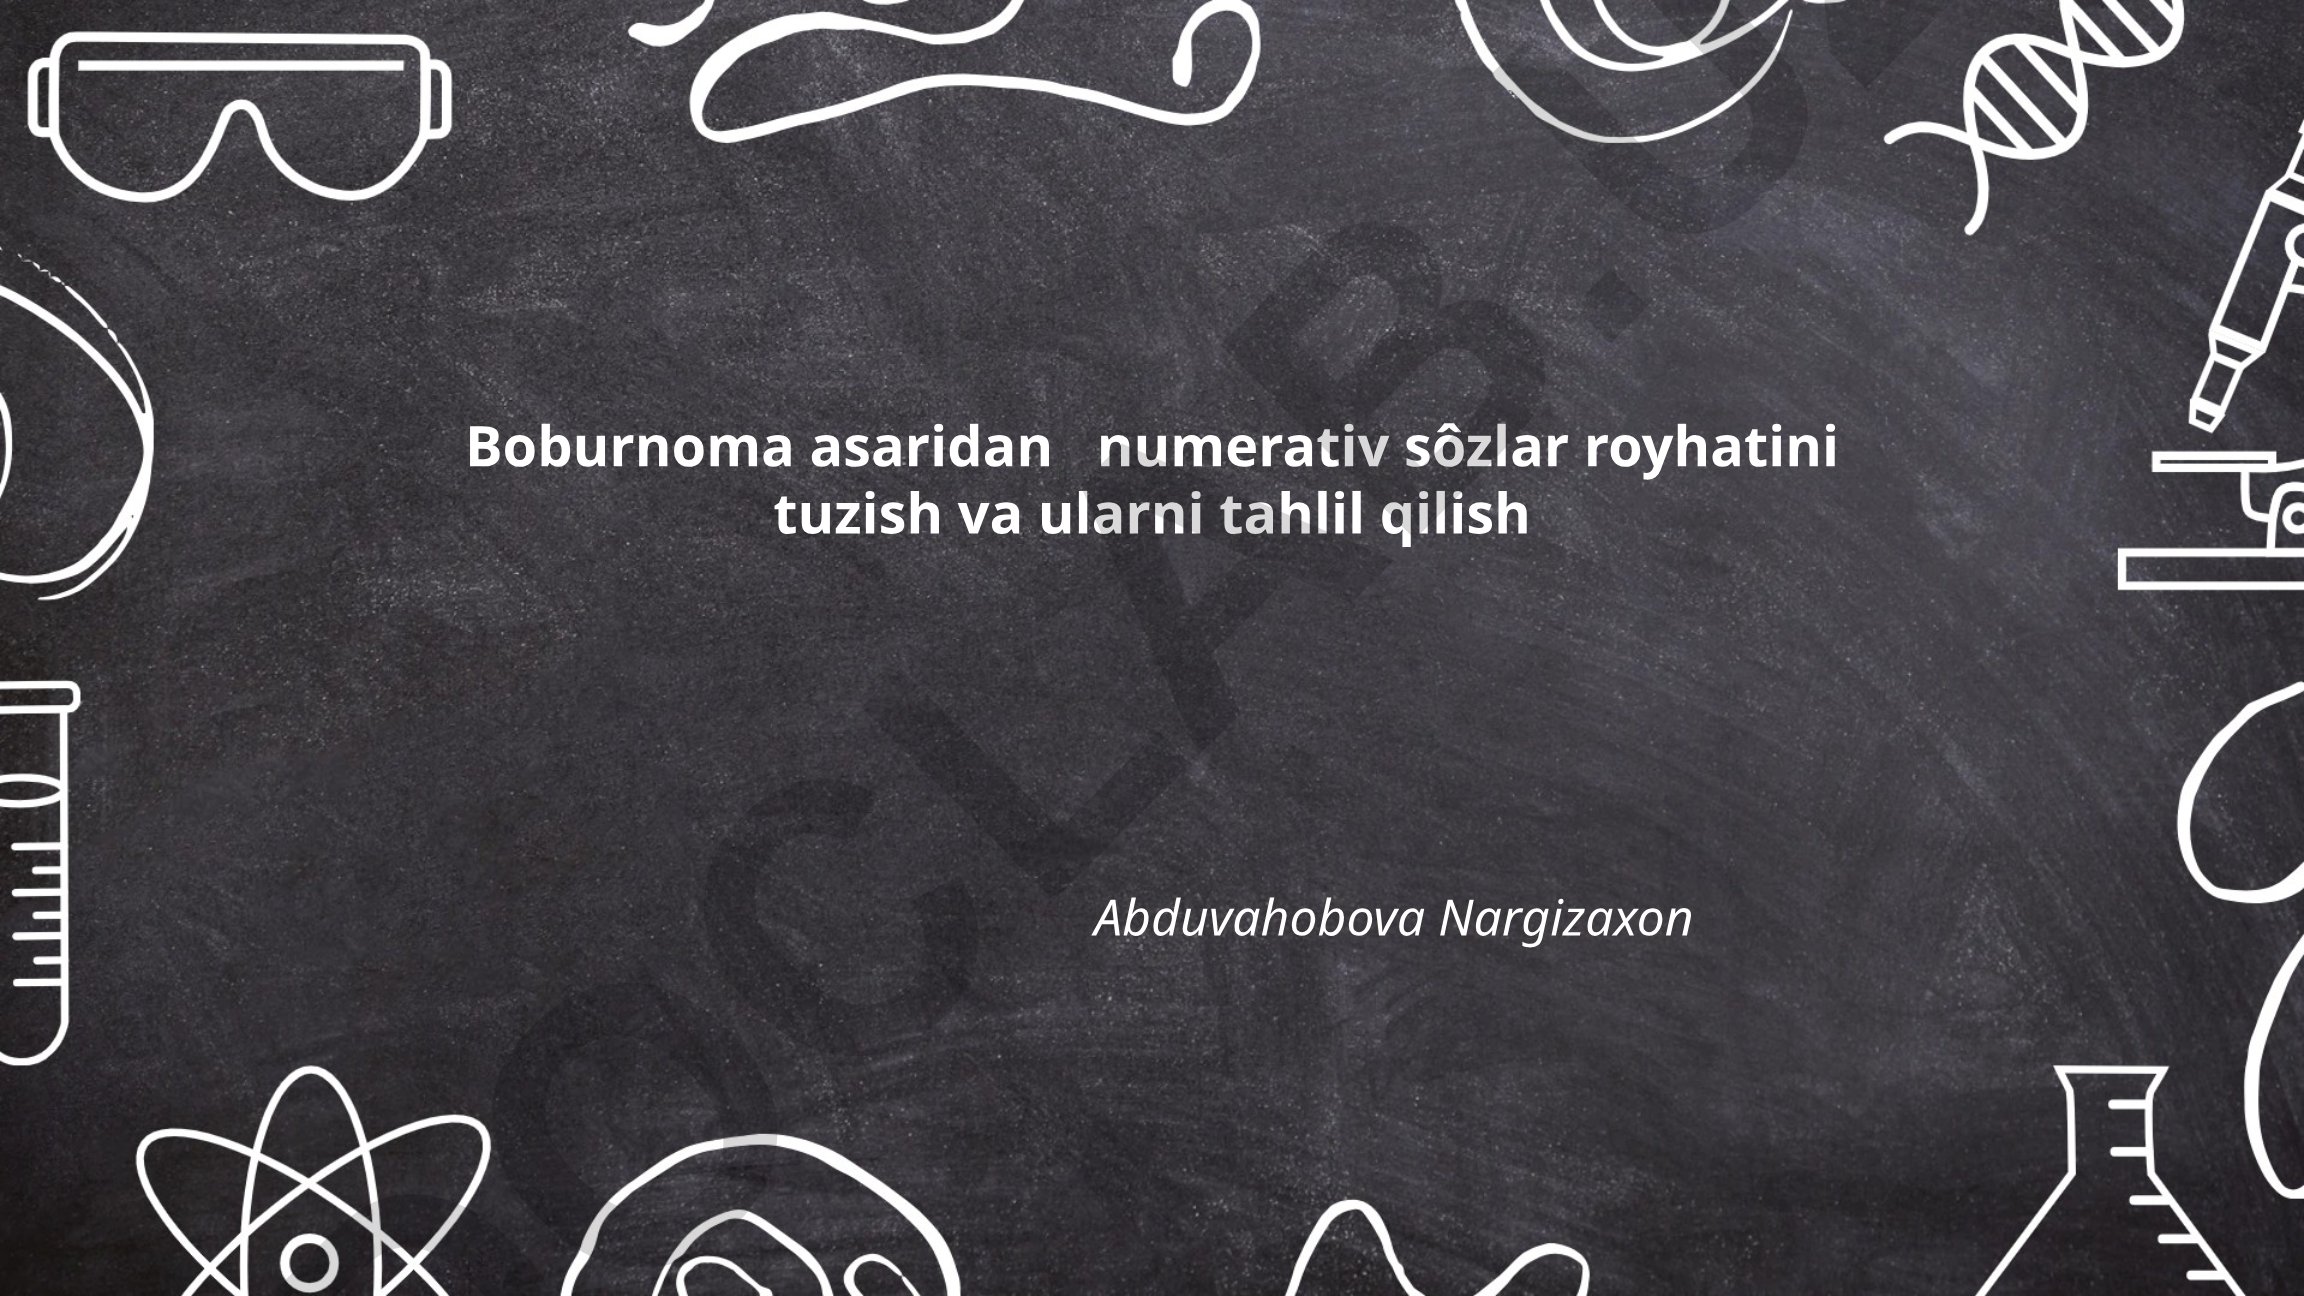 Boburnoma asaridan   numerativ sôzlar royhatini
tuzish va ularni tahlil qilish
Abduvahobova Nargizaxon